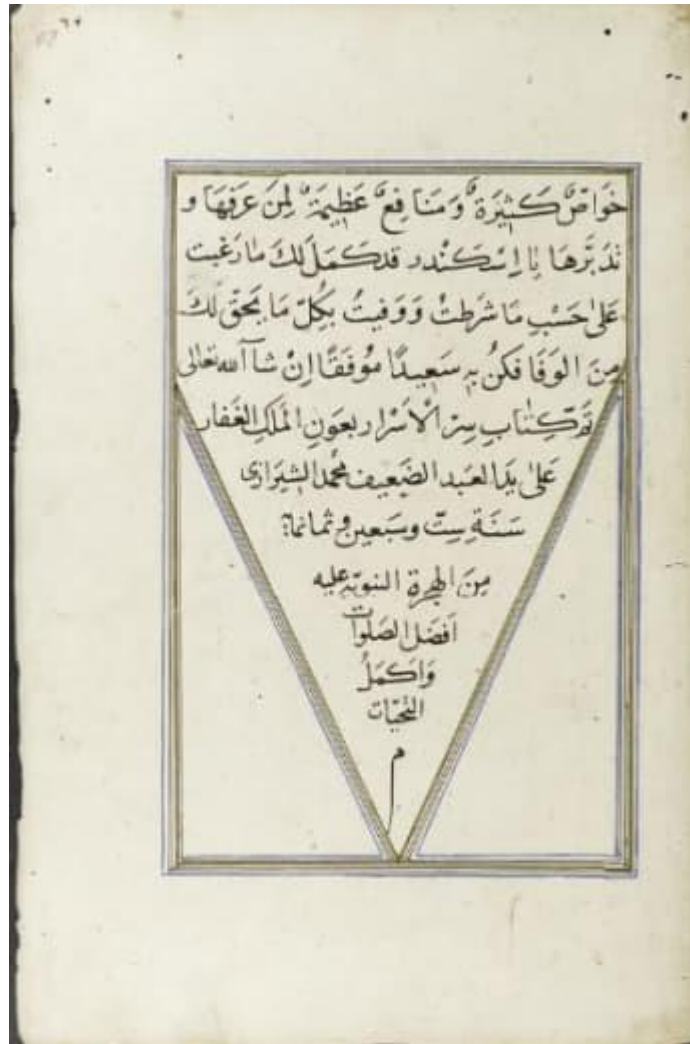 ٦٢
خَوَاصٌّ كَثِيرَةٌ وَمَنَافِعٌ عَظِيمَةٌ لِمَنْ عَرَفَهَا و
تَدَبَّرهَا يَا اِسْكَندر قدكَمَلَ لَكَ مَا رَغبت
عَلىٰ حَسْبِ مَا شَرَطتُ وَوَفيتُ بكلِّ مَا يَحقّ لَكَ
مِنَ الوَفَا فكنُ بِهِ سَعِيدًا مُوفَقًا اِنْ شاآ الله تعالى
تمّ كِتَابِ سِرّ الْاَسْرَار بعَونِ الملكِ الغَفار
عَلىٰ يدِ العَبد الضَعيف محمد الشِيرَازى
سَنَةِ سِتّ وسَبَعين و ثمانمائة
مِنَ الهِجرة النبويّه عليه
اَفضَل الصَلوات
وَاَكمَلُ
التَحِيّات
م